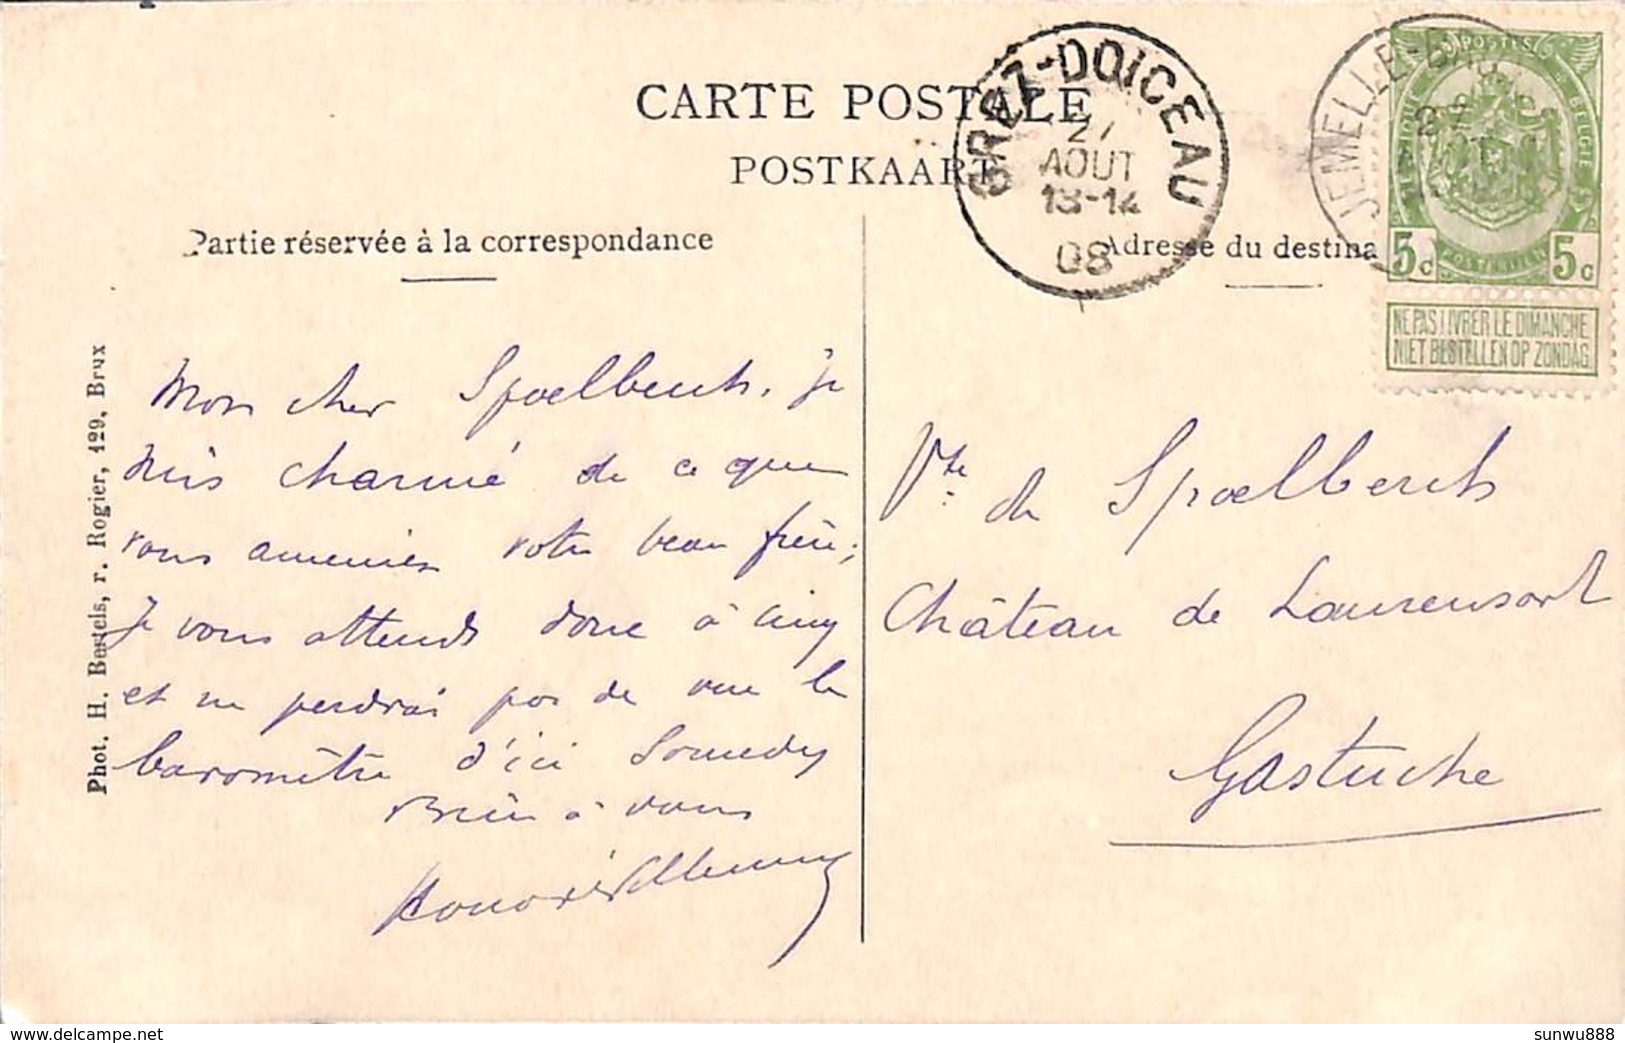 CARTE POSTALE
POSTKAART
GREZ-DOICEAU
27
AOUT
13-14
08
JEMELLE-BA
27
POSTES
BELGIQUE BELGIE
POSTERIJEN
5c 5c
NE PAS LIVRER LE DIMANCHE
NIET BESTELLEN OP ZONDAG
Partie réservée à la correspondance
Adresse du destina
Mon cher Spoelberch, je
suis charmé de ce que
vous ameniez votre beau frère;
Je vous attends donc à cinq
et ne perdrai pas de vue le
baromètre d'ici Samedy
Bien à vous
Vte de Spoelberch
Château de Laurensart
Gastuche
Phot. H. Bertels, r. Rogier, 129, Brux
sunwu888